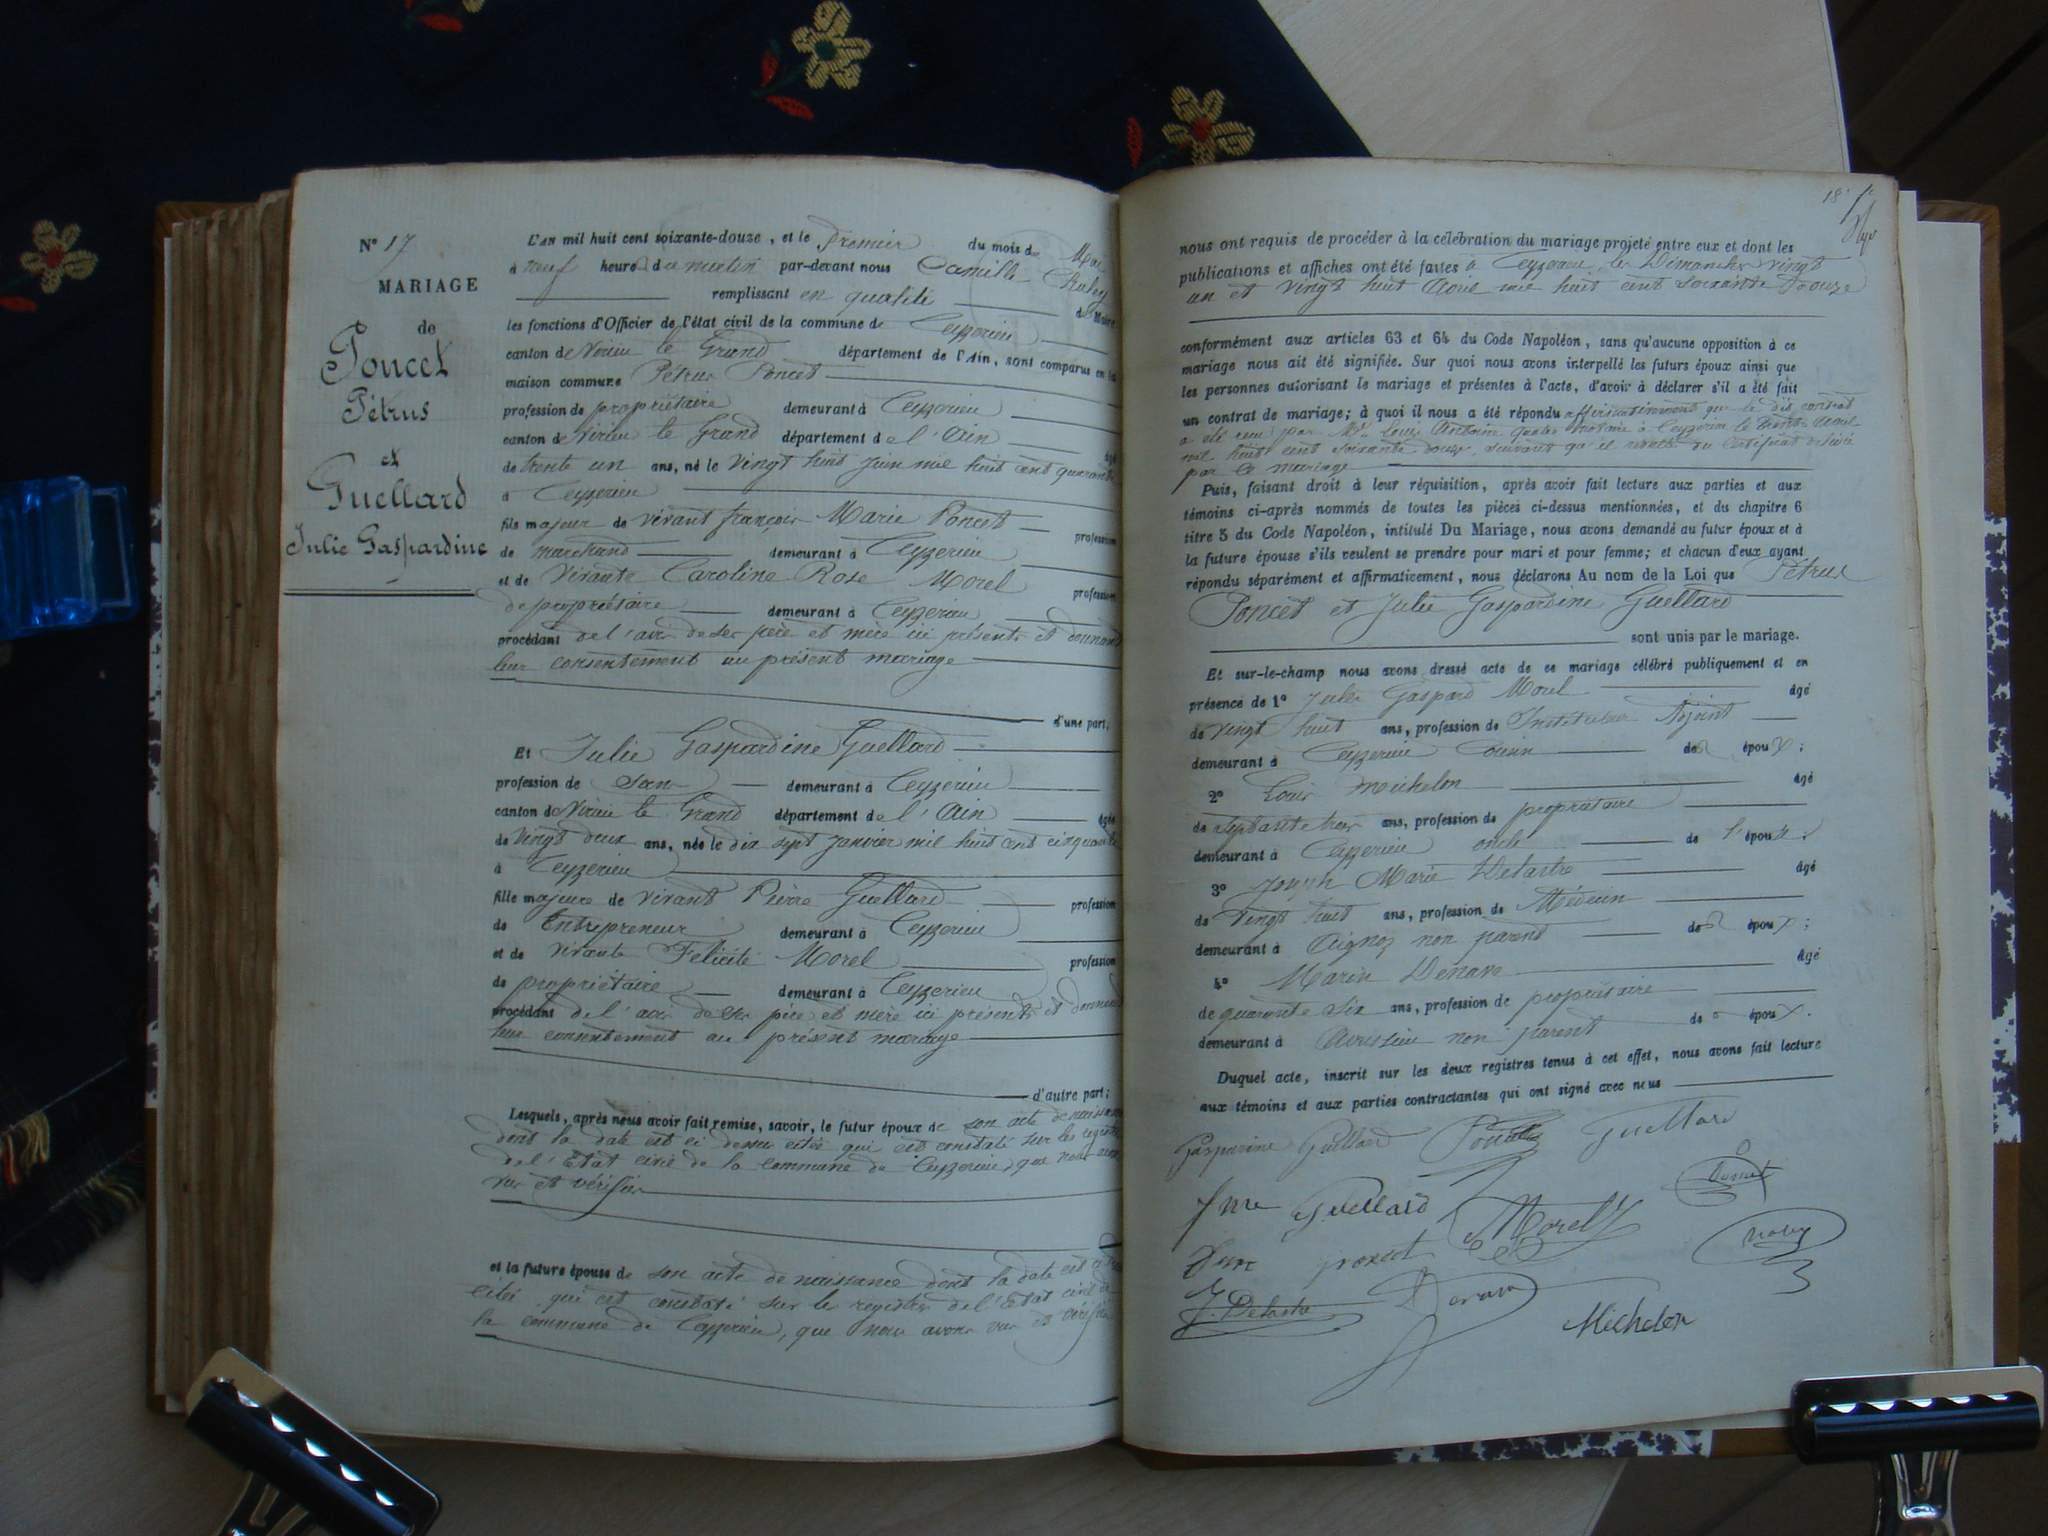 N° 17
MARIAGE
de
Poncet
Pétrus
et
Guellard
Julie Gaspardine
L'AN mil huit cent soixante-douze, et le Premier du mois de Mai
à neuf heures du matin par-devant nous Camille Chaley
remplissant en qualité de Maire
les fonctions d'Officier de l'état civil de la commune de Ceyzerieu
canton de Virieu le Grand département de l'Ain, sont comparus en la
maison commune Pétrus Poncet
profession de propriétaire demeurant à Ceyzerieu
canton de Virieu le Grand département de l'Ain âgé
de trente un ans, né le Vingt huit Juin mil huit cent quarante
à Ceyzerieu
fils majeur de vivant françois Marie Poncet profession
de marchand demeurant à Ceyzerieu
et de Vivante Caroline Rose Morel profession
de propriétaire demeurant à Ceyzerieu
procédant de l'avis de ses père et mère ici présents et donnant
leur consentement au présent mariage
d'une part;
Et Julie Gaspardine Guellard
profession de Sans demeurant à Ceyzerieu
canton de Virieu le Grand département de l'Ain âgée
de Vingt deux ans, née le dix sept Janvier mil huit cent cinquante
à Ceyzerieu
fille majeure de vivant Pierre Guellard profession
de Entrepreneur demeurant à Ceyzerieu
et de vivante Félicité Morel profession
de propriétaire demeurant à Ceyzerieu
procédant de l'avis de ses père et mère ici présents et donnant
leur consentement au présent mariage
d'autre part;
Lesquels, après nous avoir fait remise, savoir, le futur époux de son acte de naissance
dont la date est ci dessus citée qui est constaté sur les registres
de l'Etat civil de la commune de Ceyzerieu, que nous avons
vus et vérifiés
et la future épouse de son acte de naissance dont la date est
citée qui est constaté sur les registres de l'Etat civil de
la commune de Ceyzerieu, que nous avons vus et vérifiés
18
nous ont requis de procéder à la célébration du mariage projeté entre eux et dont les
publications et affiches ont été faites à Ceyzerieu, les Dimanches vingt
un et vingt huit Avril mil huit cent soixante Douze
conformément aux articles 63 et 64 du Code Napoléon, sans qu'aucune opposition à ce
mariage nous ait été signifiée. Sur quoi nous avons interpellé les futurs époux ainsi que
les personnes autorisant le mariage et présentes à l'acte, d'avoir à déclarer s'il a été fait
un contrat de mariage; à quoi il nous a été répondu affirmativement que le dit contrat
a été reçu par Me Louis Antoine notaire à Ceyzerieu le trente Avril
mil huit cent soixante douze, suivant qu'il résulte du certificat délivré
par ce mariage
Puis, faisant droit à leur réquisition, après avoir fait lecture aux parties et aux
témoins ci-après nommés de toutes les pièces ci-dessus mentionnées, et du chapitre 6
titre 5 du Code Napoléon, intitulé Du Mariage, nous avons demandé au futur époux et à
la future épouse s'ils veulent se prendre pour mari et pour femme; et chacun d'eux ayant
répondu séparément et affirmativement, nous déclarons Au nom de la Loi que Pétrus
Poncet et Julie Gaspardine Guellard
sont unis par le mariage.
Et sur-le-champ nous avons dressé acte de ce mariage célébré publiquement et en
présence de 1° Jules Gaspard Morel âgé
de vingt huit ans, profession de Instituteur Adjoint
demeurant à Ceyzerieu cousin des époux;
2° Louis Michelon âgé
de septante trois ans, profession de propriétaire
demeurant à Ceyzerieu oncle de l'époux;
3° Joseph Marie Delastre âgé
de Vingt huit ans, profession de Médecin
demeurant à Aignoz non parent des époux;
4° Marin Dénava âgé
de quarante six ans, profession de propriétaire
demeurant à Avrissieu non parent des époux.
Duquel acte, inscrit sur les deux registres tenus à cet effet, nous avons fait lecture
aux témoins et aux parties contractantes qui ont signé avec nous
Gasparine Guellard Poncet Guellard
fme Guellard Morel J
fme poncet
J. Delastre Dénava
Michelon